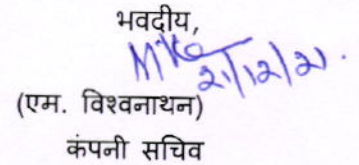 भवदीय,
21/12/21.
(एम. विश्वनाथन)
कंपनी सचिव